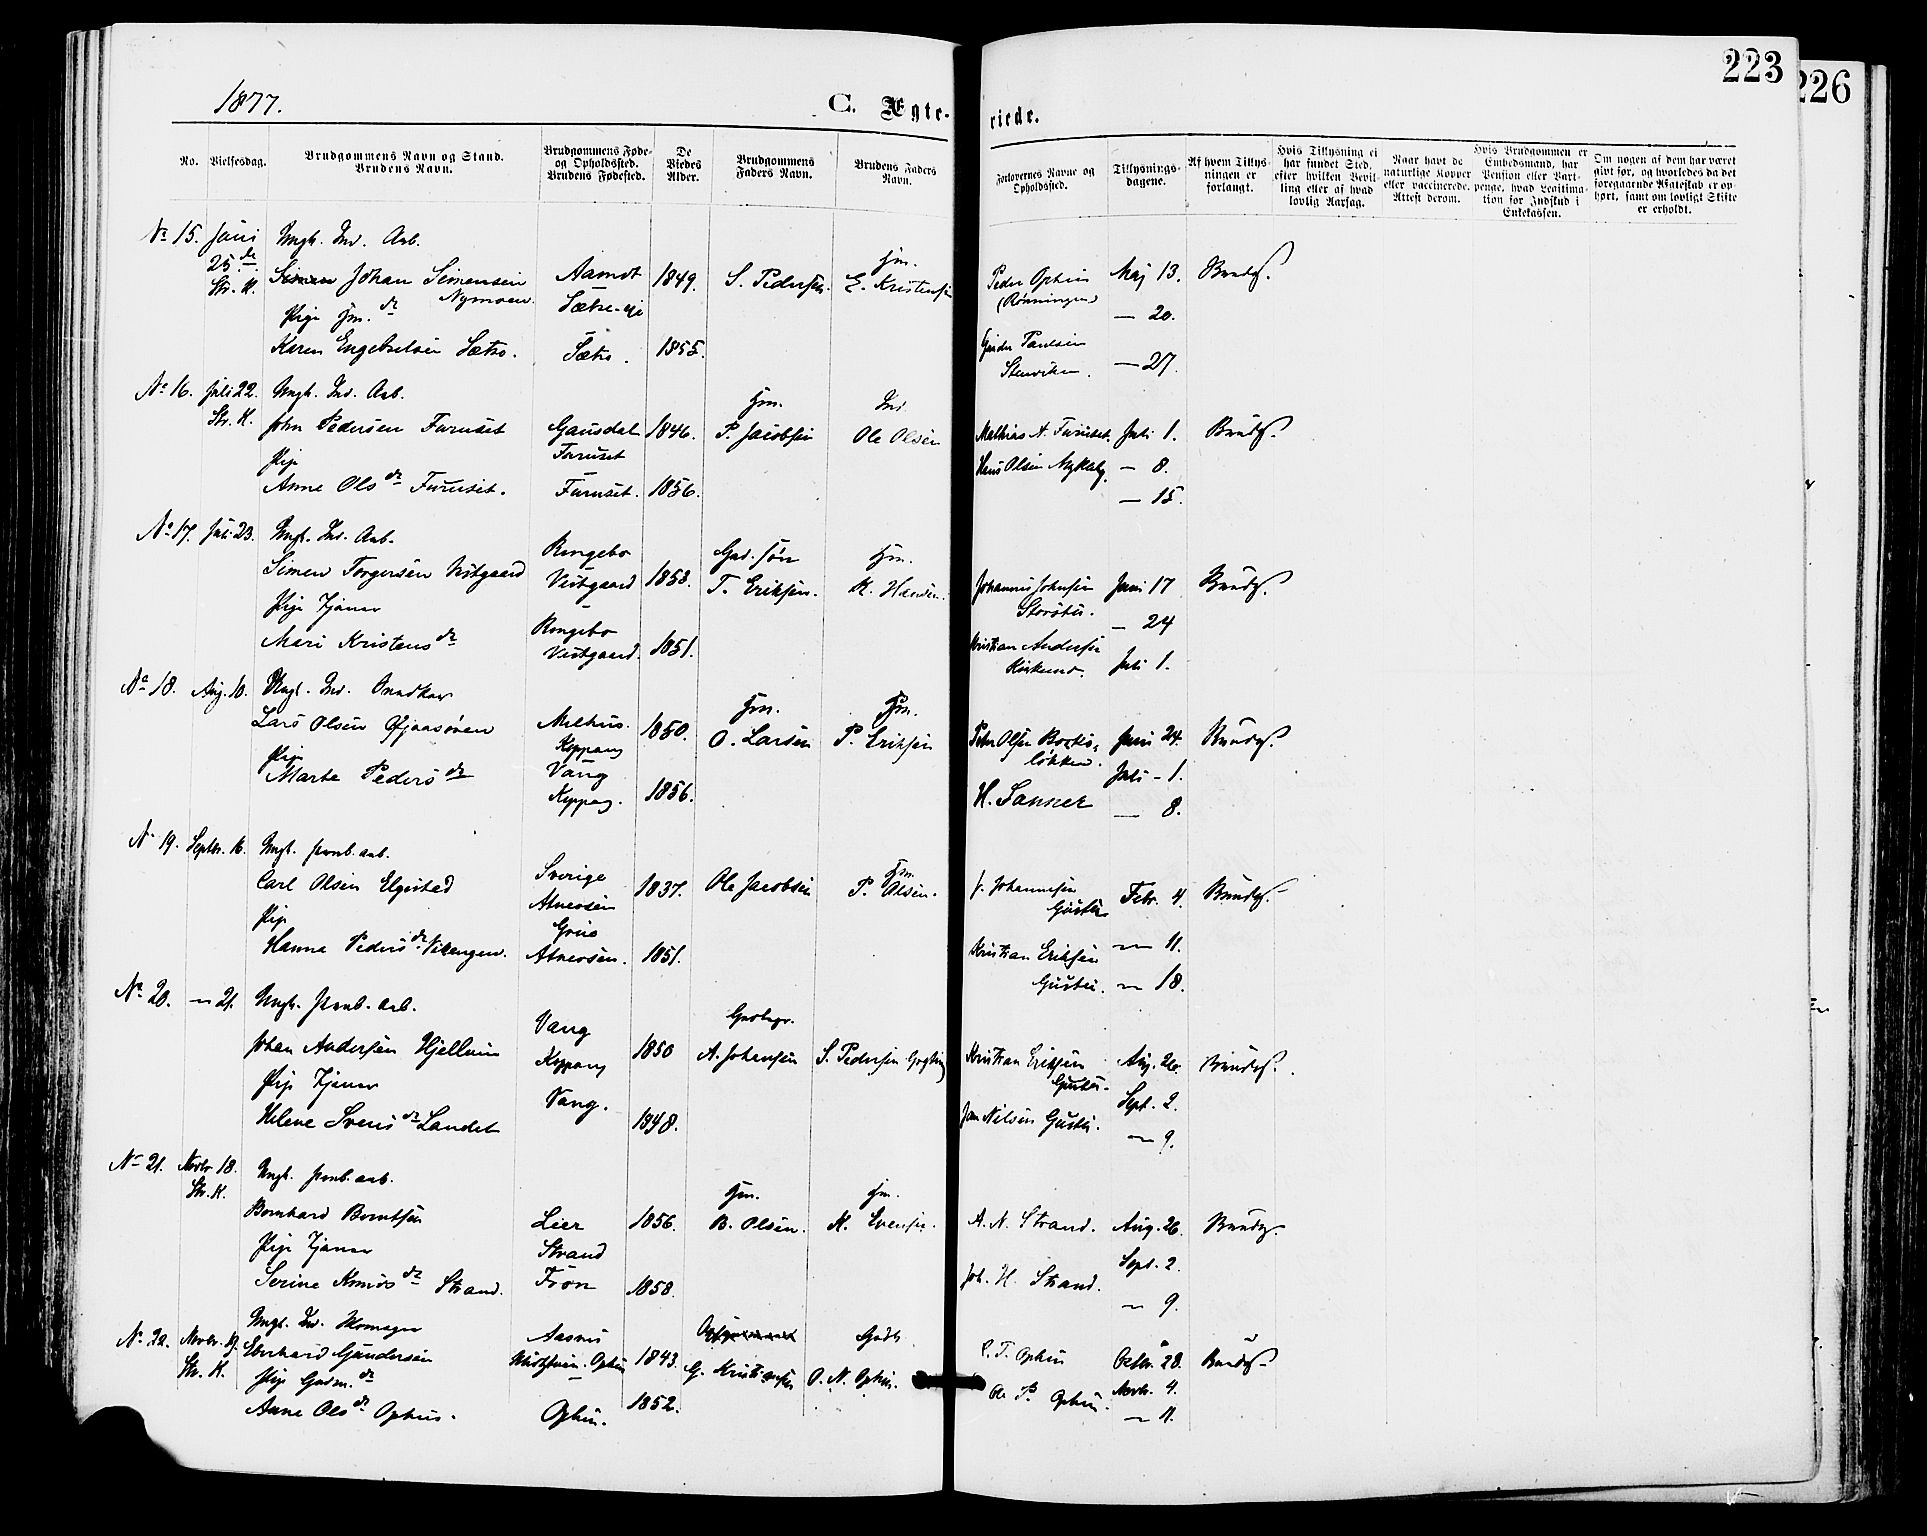 223
226
1877.
C. Ægte-
viede.
No.
Vielsesdag.
Brudgommens Navn og Stand.
Brudens Navn.
Brudgommens Føde-
og Opholdssted.
Brudens Fødested.
De
Viedes
Alder.
Brudgommens
Faders Navn.
Brudens Faders
Navn.
Forlovernes Navne og
Opholdssted.
Tillysnings-
dagene.
Af hvem Tillys-
ningen er
forlangt.
Hvis Tillysning ei
har fundet Sted,
efter hvilken Bevil-
ling eller af hvad
lovlig Aarsag.
Naar havt de
naturlige Kopper
eller vaccinerede.
Attest derom.
Hvis Brudgommen er
Embedsmand, har
Pension eller Vart-
penge, hvad Legitima-
tion for Indskud i
Enkekassen.
Om nogen af dem har været
givt før, og hvorledes da det
foregaaende Ægteskab er op-
hørt, samt om lovligt Skifte
er erholdt.
No 15. Juni 25 de Str. K.
Ungk. Ind. Arb.
Johan Simensen Nymoen
Pige Hm. dr
Karen Engebretsen Sætre.
Aamot
Sætre-eje
Sætre.
1849.
1855.
S. Pedersen.
Hm.
E. Kristensen
Peder Ophus
(Rønningen)
Paulsen
Stenviken.
Maj 13.
— 20.
— 27.
Brudg.
No 16. Juli 22. Str. K.
Ungk. Ind. Arb.
John Pedersen Furuset
Pige
Anne Ols dr Furuset.
Gausdal
Furuset
Furuset.
1846.
1856.
Hm.
P. Jacobsen
Ind
Ole Olsen
Mathias A. Furuset.
Hans Olsen Nykalg.
Juli 1.
— 8.
— 15.
Brudg.
No 17. Juli 23.
Ungk. Ind. Arb.
Simen Torgersen Vestgaard
Pige Tjener
Mari Kristens dr
Ringebo
Vestgaard
Ringebo
Vestgaard.
1853.
1851.
Gad. søn
T. Eriksen.
Hm.
K. Hansen.
Johannes Johnsen
Storstu.
Kristian Andersen
Juni 17
— 24
Juli 1.
Brudg.
No 18. Aug. 10.
Ungk. Ind.
Lars Olsen
Pige
Marte Peders dr
Melhus.
Koppang
Vang
Koppang.
1850.
1856.
Hm.
O. Larsen
Hm.
P. Eriksen
Peter Olsen
løkken.
H. Sanner
Juni 24.
Juli - 1.
— 8.
Brudg.
N 19. Septbr. 16.
Ungk. Jernb. arb.
Carl Olsen Elgestad
Pige
Hanna Peders dr Vikengen.
Sverige
Atneosen
Grue
Atneosen.
1837.
1851.
Ole Jacobsen
Hm.
P. Olsen.
J. Johannesen
Gustu
Kristian Eriksen
Gustu.
Febr. 4.
— 11.
— 18.
Brudg.
No 20. — 21.
Ungk. Jernb. arb.
Johan Andersen Hjellum
Pige Tjener
Helene Svens dr Landet
Vang
Koppang
Vang.
1850
1848.
Gaobgr.
A. Johansen
S. Pedersen
Kristian Eriksen
Gustu.
Jon Nilsen Gustu.
Aug. 26.
Sept. 2.
— 9.
Brudg.
No 21. Novbr 18. Str. K.
Ungk. Jernb. arb.
Bernhard Berntsen
Pige Tjener
Serine Knuds dr Strand.
Lier
Strand
Fron
1856.
1858.
Hm.
B. Olsen.
Hm.
K. Evensen.
A. N. Strand.
Joh. H. Strand.
Aug. 26.
Sept. 2.
— 9.
Brudg.
No 22. Novbr. 19. Str. K.
Ungk. Ind. Skomager
Eberhard Gundersen
Pige Gadm. dr
Anne Ols dr Ophus.
Aasnes
Ophus
Ophus.
1843.
1852.
G. Kristiansen
Gadb
O. N. Ophus.
P. T. Ophus
Ole P. Ophus.
Octbr. 28.
Novbr. 4.
— 11.
Brudg.